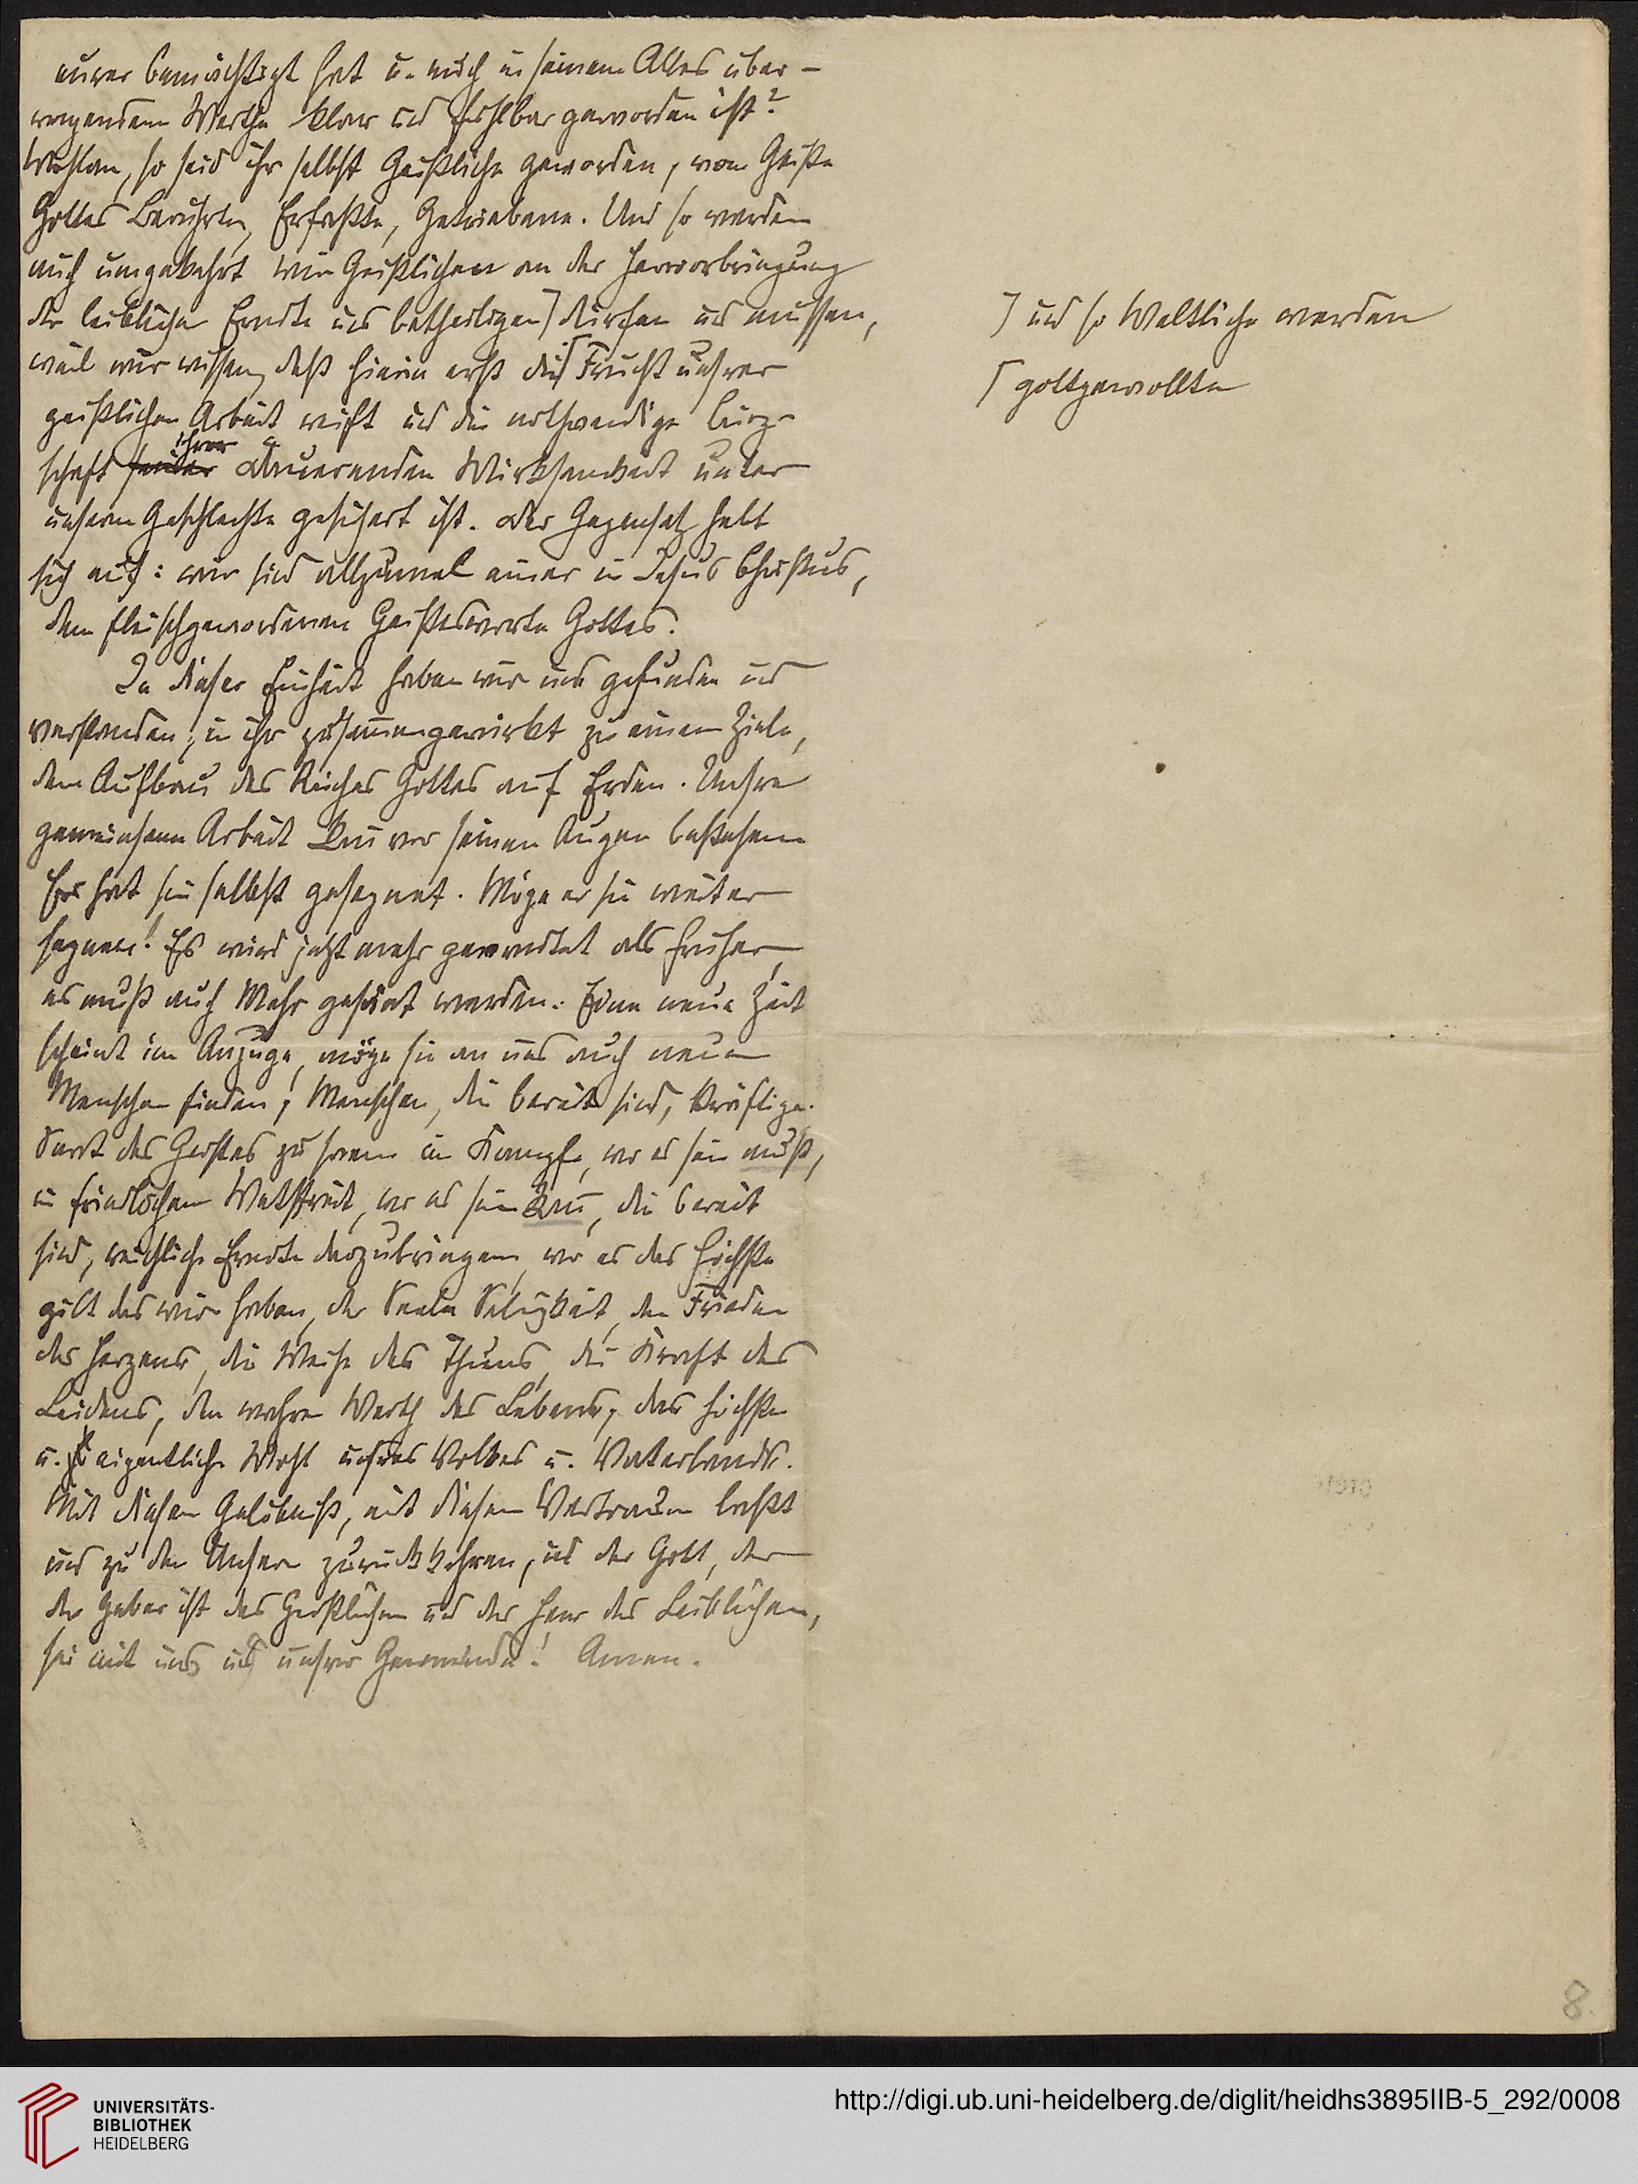 eurer bemächtigt hat u. euch in seinem Alles über-
wiegendem Werthe klar und fühlbar geworden ist?
Wohlan, so seid ihr selbst Geistliche geworden, vom Geiste
Gottes Berührte, Erfaßte, Getriebene. Und so werden
auch umgekehrt wir Geistlichen an der Hervorbringung
der leiblichen Erndte uns betheiligen ⌉ dürfen und müssen,
⌉ und so Weltliche werden
weil wir wissen, daß hierin erst die ⌈ Frucht unsrer
⌈ gottgewollte
geistlichen Arbeit reift und die nothwendige Bürg-
schaft ihrer dauernden Wirksamkeit unter
unserm Geschlechte gesichert ist. Der Gegensatz hebt
sich auf: wir sind allzumal einer in Jesus Christus,
dem fleischgewordenen Geistesworte Gottes.
In dieser Einheit haben wir uns gefunden und
verstanden, in ihr zusammengewirkt zu einem Ziele,
dem Aufbau des Reiches Gottes auf Erden. Unsre
gemeinsame Arbeit kann vor seinen Augen bestehen
Er hat sie selbst gesegnet. Möge er sie weiter
segnen! Es wird jetzt mehr geerndtet als früher,
es muß auch Mehr gesäet werden. Eine neue Zeit
scheint im Anzuge, möge sie an uns auch neue
Menschen finden, Menschen, die bereit sind, kräftige
Saat des Geistes zu streuen im Kampfe, wo es sein muß,
in friedlichem Wettstreit, wo es sein kann, die bereit
sind, reichliche Erndte darzubringen, wo es das Höchste
gilt das wir haben, der Seele Seligkeit, den Frieden
des Herzens, die Weihe des Thuns, die Kraft des
Leidens, den wahren Werth des Lebens, das höchste
u. eigentliche Wohl unsres Volkes u. Vaterlands.
Mit diesem Gelübniß, mit diesem Vertrauen laßt
uns zu den Unsern zurückkehren, und der Gott, der
der Geber ist des Geistlichen und der Herr des Leiblichen,
sei mit uns und unsrer Gemeinde! Amen.
8.
UNIVERSITÄTS-
BIBLIOTHEK
HEIDELBERG
http://digi.ub.uni-heidelberg.de/diglit/heidhs3895IIB-5_292/0008